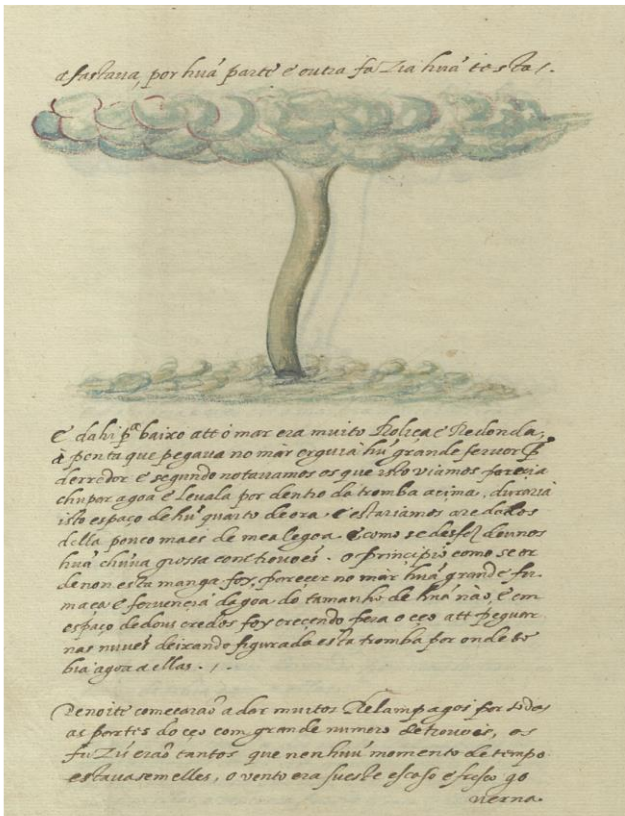 afastaua, por huá parte e outra fazia huá testa/.
E dahi pª baixo atté o mar era muito Roliça e Redonda,
à ponta que pegaua no már erguia hú grande feruor
derredor e segundo notauamos os que isto viamos parecia
chupar agoa e leuala por dentro da tromba acima, duraria
isto espaço de hú quarto de ora, e estariamos aredados
della pouco maes de mea legoa. E como se desfez deu nos
huá chuua grossa con trouoẽs. O principio como se or
denou esta manga foy, pareçer no már huá grande fu
maça e feruença dagoa do tamanho de huá náo, e em
espaço de dous credos foy creçendo pera o çeo atté pegar
nas nuueñs deixando figurada esta tromba por onde so
bia agoa a ellas. /.
De noite começaraõ a dar muitos Relampagos por todas
as partes do çeo com grande numero de trouoĩs, os
fuzíz eraõ tantos que nenhuú momento de tempo
estaua sem elles, o vento era sueste escaso e fresco go
uerna.